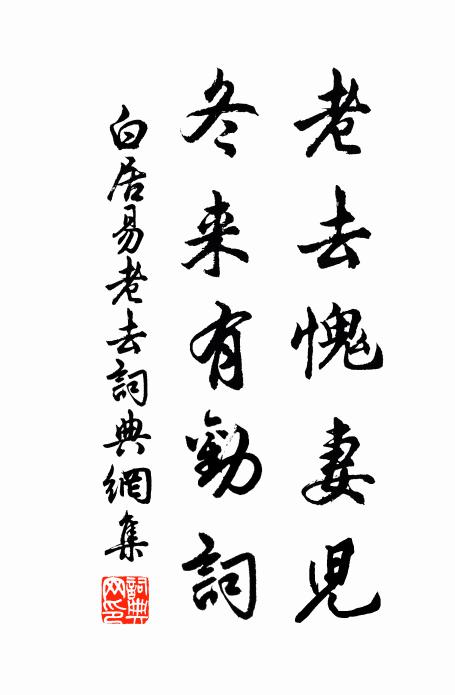 老去愧妻児
冬来有勸詞
白居易老去詞典網集
詞典網印